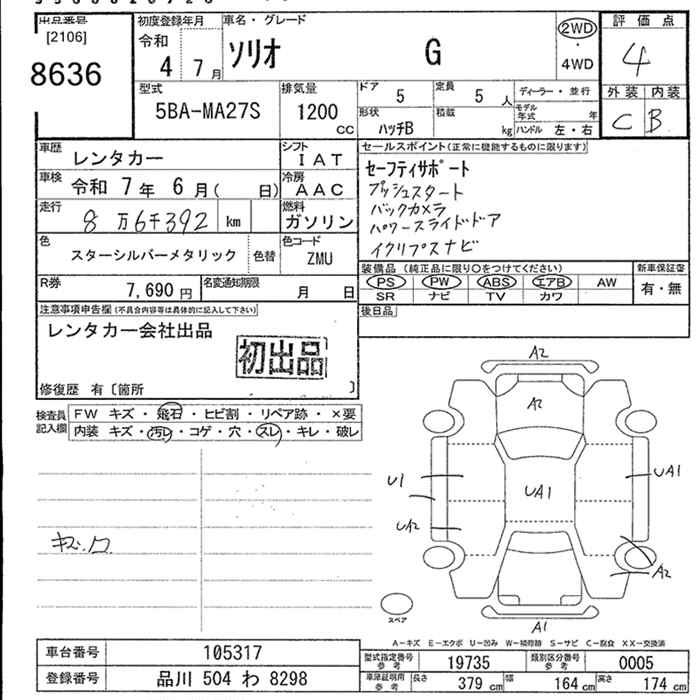 出品番号
[2106]
8636
初度登録年月
令和
4 7月
車名・グレード
ソリオ G
2WD
・
4WD
評価点
4
外装 内装
C B
型式
5BA-MA27S
排気量
1200
CC
ドア 5
定員 5 人
ディーラー・並行
モデル年式 年
形状 ハッチB
積載 kg
ハンドル 左・右
車歴 レンタカー
シフト IAT
車検 令和 7年 6月( 日)
冷房 AAC
走行 8万6千392 km
燃料 ガソリン
色 スターシルバーメタリック 色替
色コード ZMU
R券 7,690円
名変通知期限 月 日
セールスポイント(正常に機能するものに限ります)
セーフティサポート
プッシュスタート
バックカメラ
パワースライドドア
イクリプスナビ
装備品(純正品に限り〇をつけてください)
PS PW ABS エアB AW
SR ナビ TV カワ
新車保証書
有・無
後日品
注意事項申告欄(不具合内容等は具体的に記入して下さい)
レンタカー会社出品
初出品
修復歴 有〔箇所 〕
検査員記入欄
FW キズ・飛石・ヒビ割・リペア跡・×要
内装 キズ・汚レ・コゲ・穴・スレ・キレ・破レ
キズ.凹
A2
A2
U1
UA1
UA1
UA2
A2
A1
スペア
A-キズ E-エクボ U-凹み W-補修跡 S-サビ C-腐食 XX-交換済
車台番号 105317
登録番号 品川 504 わ 8298
型式指定番号 参考 19735
類別区分番号 参考 0005
車庫証明用 参考 長さ 379cm 幅 164cm 高さ 174cm